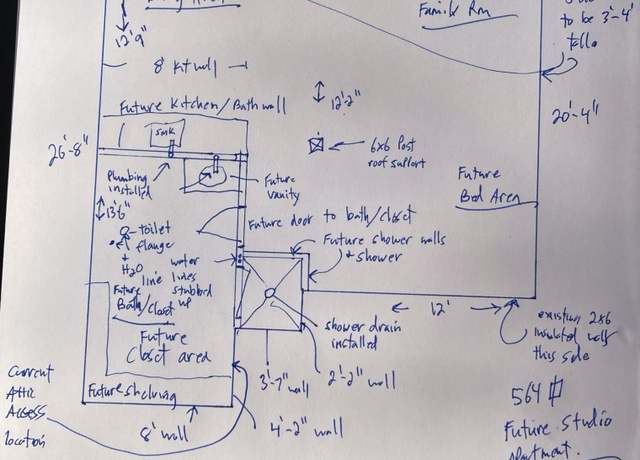 Family Rm
to be 3'-4'
talla
12'9"
8' Kit wall
12'-2"
20'-4"
Future Kitchen/Bath wall
SINK
26'-8"
6x6 Post
roof support
Plumbing
installed
Future
vanity
Future
Bed Area
13'6"
toilet
flange
Future door to bath/closet
Future shower walls
+ shower
+
H2O
line
water
lines
stubbed
up
Future
Bath/closet
12'
existing 2x6
insulated wall
this side
shower drain
installed
Future
Closet area
Current
Attic
Access
location
3'-7" wall
2'-2" wall
Future shelving
8' wall
4'-2" wall
564
Future Studio
Apartment